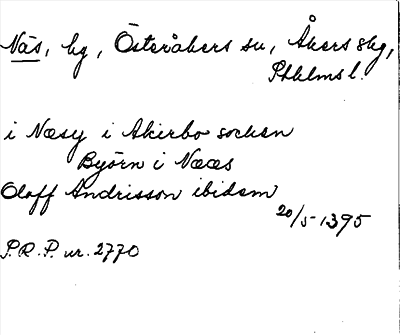 Näs, hg, Österåkers sn, Åkers skg,
Sthlms l.
i Næsy i Akirbo socken
Byörn i Nææs
Oloff Andrisson ibidem
20/5-1395
P.R.P. nr. 2770